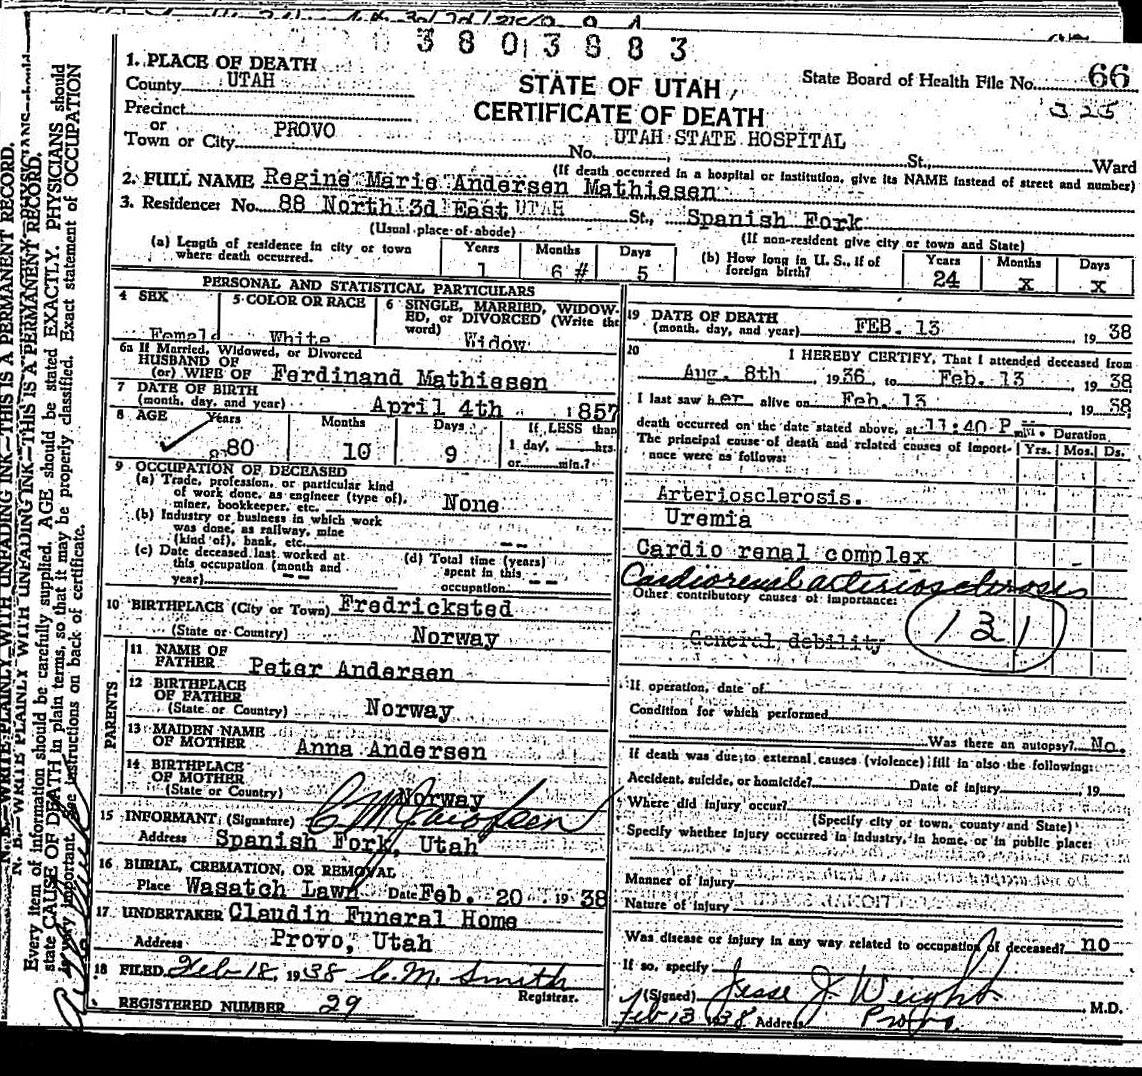 3803883
1. PLACE OF DEATH
County UTAH
Precinct
or
Town or City PROVO
STATE OF UTAH
CERTIFICATE OF DEATH
UTAH STATE HOSPITAL
State Board of Health File No. 66
325
No. St., Ward
(If death occurred in a hospital or institution, give its NAME instead of street and number)
2. FULL NAME Regine Marie Andersen Mathiesen
3. Residence: No. 88 North 3d East UTAH St., Spanish Fork
(Usual place of abode) (If non-resident give city or town and State)
(a) Length of residence in city or town where death occurred. Years 1 Months 6 # Days 5
(b) How long in U. S., if of foreign birth? Years 24 Months X Days X
PERSONAL AND STATISTICAL PARTICULARS
4 SEX Female
5 COLOR OR RACE White
6 SINGLE, MARRIED, WIDOWED, or DIVORCED (Write the word) Widow
6a If Married, Widowed, or Divorced
HUSBAND OF
(or) WIFE OF Ferdinand Mathiesen
7 DATE OF BIRTH
(month, day, and year) April 4th 1857
8 AGE Years 80 Months 10 Days 9 If LESS than 1 day, hrs. or min.?
9 OCCUPATION OF DECEASED
(a) Trade, profession, or particular kind
of work done, as engineer (type of),
miner, bookkeeper, etc. None
(b) Industry or business in which work
was done, as railway, mine
(kind of), bank, etc. --
(c) Date deceased last worked at
this occupation (month and
year) --
(d) Total time (years)
spent in this
occupation --
10 BIRTHPLACE (City or Town) Fredricksted
(State or Country) Norway
PARENTS
11 NAME OF
FATHER Peter Andersen
12 BIRTHPLACE
OF FATHER
(State or Country) Norway
13 MAIDEN NAME
OF MOTHER Anna Andersen
14 BIRTHPLACE
OF MOTHER
(State or Country) Norway
15 INFORMANT (Signature)
Address Spanish Fork, Utah
16 BURIAL, CREMATION, OR REMOVAL
Place Wasatch Lawn Date Feb. 20 1938
17 UNDERTAKER Claudin Funeral Home
Address Provo, Utah
18 FILED Feb 18, 1938 C. M. Smith
Registrar.
REGISTERED NUMBER 29
19 DATE OF DEATH
(month, day, and year) FEB. 13 1938
20 I HEREBY CERTIFY, That I attended deceased from
Aug. 8th, 1936, to Feb. 13 1938
I last saw her alive on Feb. 13 1938
death occurred on the date stated above, at 11:40 P m. Duration
The principal cause of death and related causes of importance were as follows: Yrs. Mos. Ds.
Arteriosclerosis.
Uremia
Cardio renal complex
Cardiorenal arteriosclerosis
Other contributory causes of importance:
General debility
131
If operation, date of
Condition for which performed
Was there an autopsy? No.
If death was due to external causes (violence) fill in also the following:
Accident, suicide, or homicide? Date of injury , 19
Where did injury occur?
(Specify city or town, county and State)
Specify whether injury occurred in industry, in home, or in public place:
Manner of injury
Nature of injury
Was disease or injury in any way related to occupation of deceased? no
If so, specify
(Signed) Jesse J. Weight , M.D.
Feb 13 1938 Address Provo.
N. B.—WRITE PLAINLY WITH UNFADING INK—THIS IS A PERMANENT RECORD.
Every item of information should be carefully supplied. AGE should be stated EXACTLY. PHYSICIANS should
state CAUSE OF DEATH in plain terms, so that it may be properly classified. Exact statement of OCCUPATION
is very important. See instructions on back of certificate.